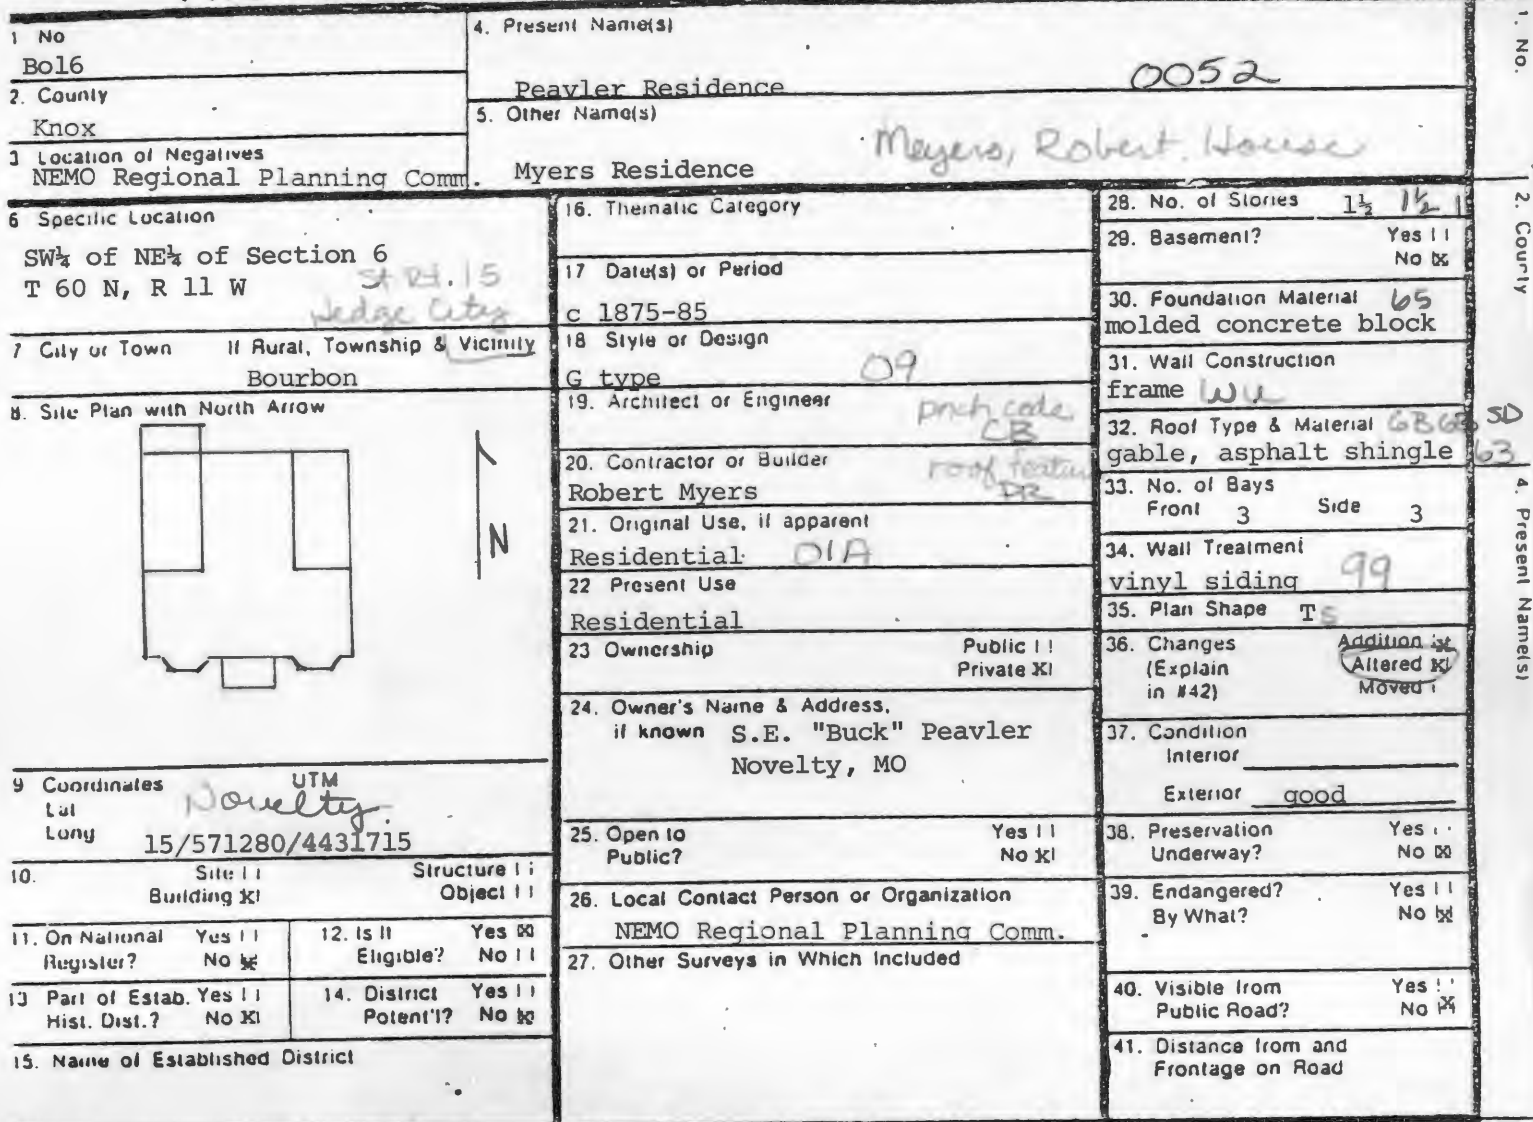 1 No
Bo16
2. County
Knox
3 Location of Negatives
NEMO Regional Planning Comm.
4. Present Name(s)
Peavler Residence
0052
5. Other Name(s)
Myers Residence
Meyers, Robert. House
6 Specific Location
SW¼ of NE¼ of Section 6
T 60 N, R 11 W
St Rt. 15
Hedge City
7 City or Town If Rural, Township & Vicinity
Bourbon
8. Site Plan with North Arrow
N
9 Coordinates UTM
Lat
Novelty
Long
15/571280/4431715
10. Site Structure
Building X Object
11. On National Register? Yes No X
12. Is It Eligible? Yes X No
13 Part of Estab. Hist. Dist.? Yes No X
14. District Potent'l? Yes No X
15. Name of Established District
16. Thematic Category
17 Date(s) or Period
c 1875-85
18 Style or Design
G type 09
19. Architect or Engineer
prch code
CB
20. Contractor or Builder
Robert Myers
roof featur
DR
21. Original Use, if apparent
Residential 01A
22 Present Use
Residential
23 Ownership Public
Private X
24. Owner's Name & Address,
if known S.E. "Buck" Peavler
Novelty, MO
25. Open to Yes
Public? No X
26. Local Contact Person or Organization
NEMO Regional Planning Comm.
27. Other Surveys in Which Included
28. No. of Stories 1½ 1½
29. Basement? Yes
No X
30. Foundation Material 65
molded concrete block
31. Wall Construction
frame WU
32. Roof Type & Material GB 63 SD
gable, asphalt shingle 63
33. No. of Bays
Front 3 Side 3
34. Wall Treatment
vinyl siding 99
35. Plan Shape T
36. Changes Addition X
(Explain Altered X
in #42) Moved
37. Condition
Interior
Exterior good
38. Preservation Yes
Underway? No X
39. Endangered? Yes
By What? No X
40. Visible from Yes
Public Road? No X
41. Distance from and
Frontage on Road
1. No.
2. County
4. Present Name(s)